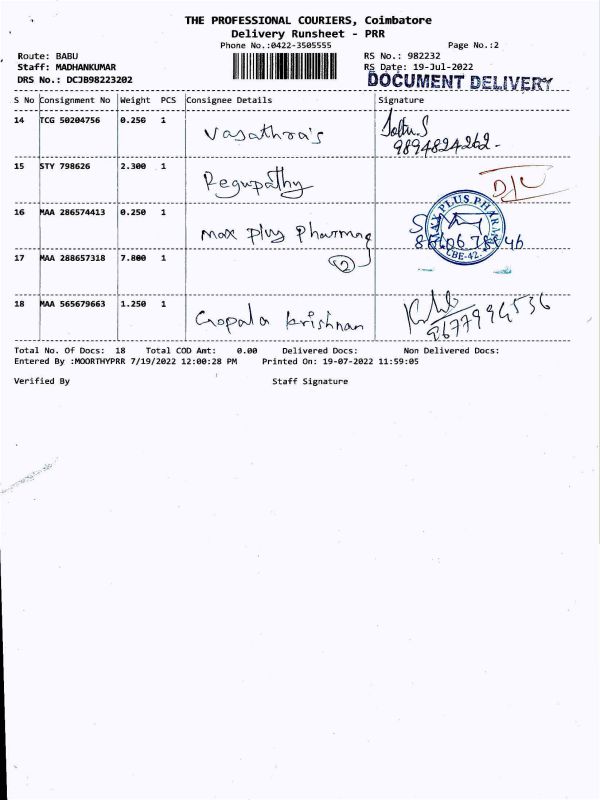 THE PROFESSIONAL COURIERS, Coimbatore
Delivery Runsheet - PRR
Phone No.:0422-3505555
Page No.:2
Route: BABU
RS No.: 982232
Staff: MADHANKUMAR
RS Date: 19-Jul-2022
DRS No.: DCJB98223202
DOCUMENT DELIVERY
S No Consignment No Weight PCS Consignee Details Signature
14 TCG 50204756 0.250 1 Vasathra's
9894824262-
15 STY 798626 2.300 1 Regupathy
16 MAA 286574413 0.250 1 max plus Pharma
MAX PLUS PHARMA
CBE-42.
17 MAA 288657318 7.800 1 (2)
18 MAA 565679663 1.250 1 Gopala krishnan
9677994536
Total No. Of Docs: 18 Total COD Amt: 0.00 Delivered Docs: Non Delivered Docs:
Entered By :MOORTHYPRR 7/19/2022 12:00:28 PM Printed On: 19-07-2022 11:59:05
Verified By Staff Signature